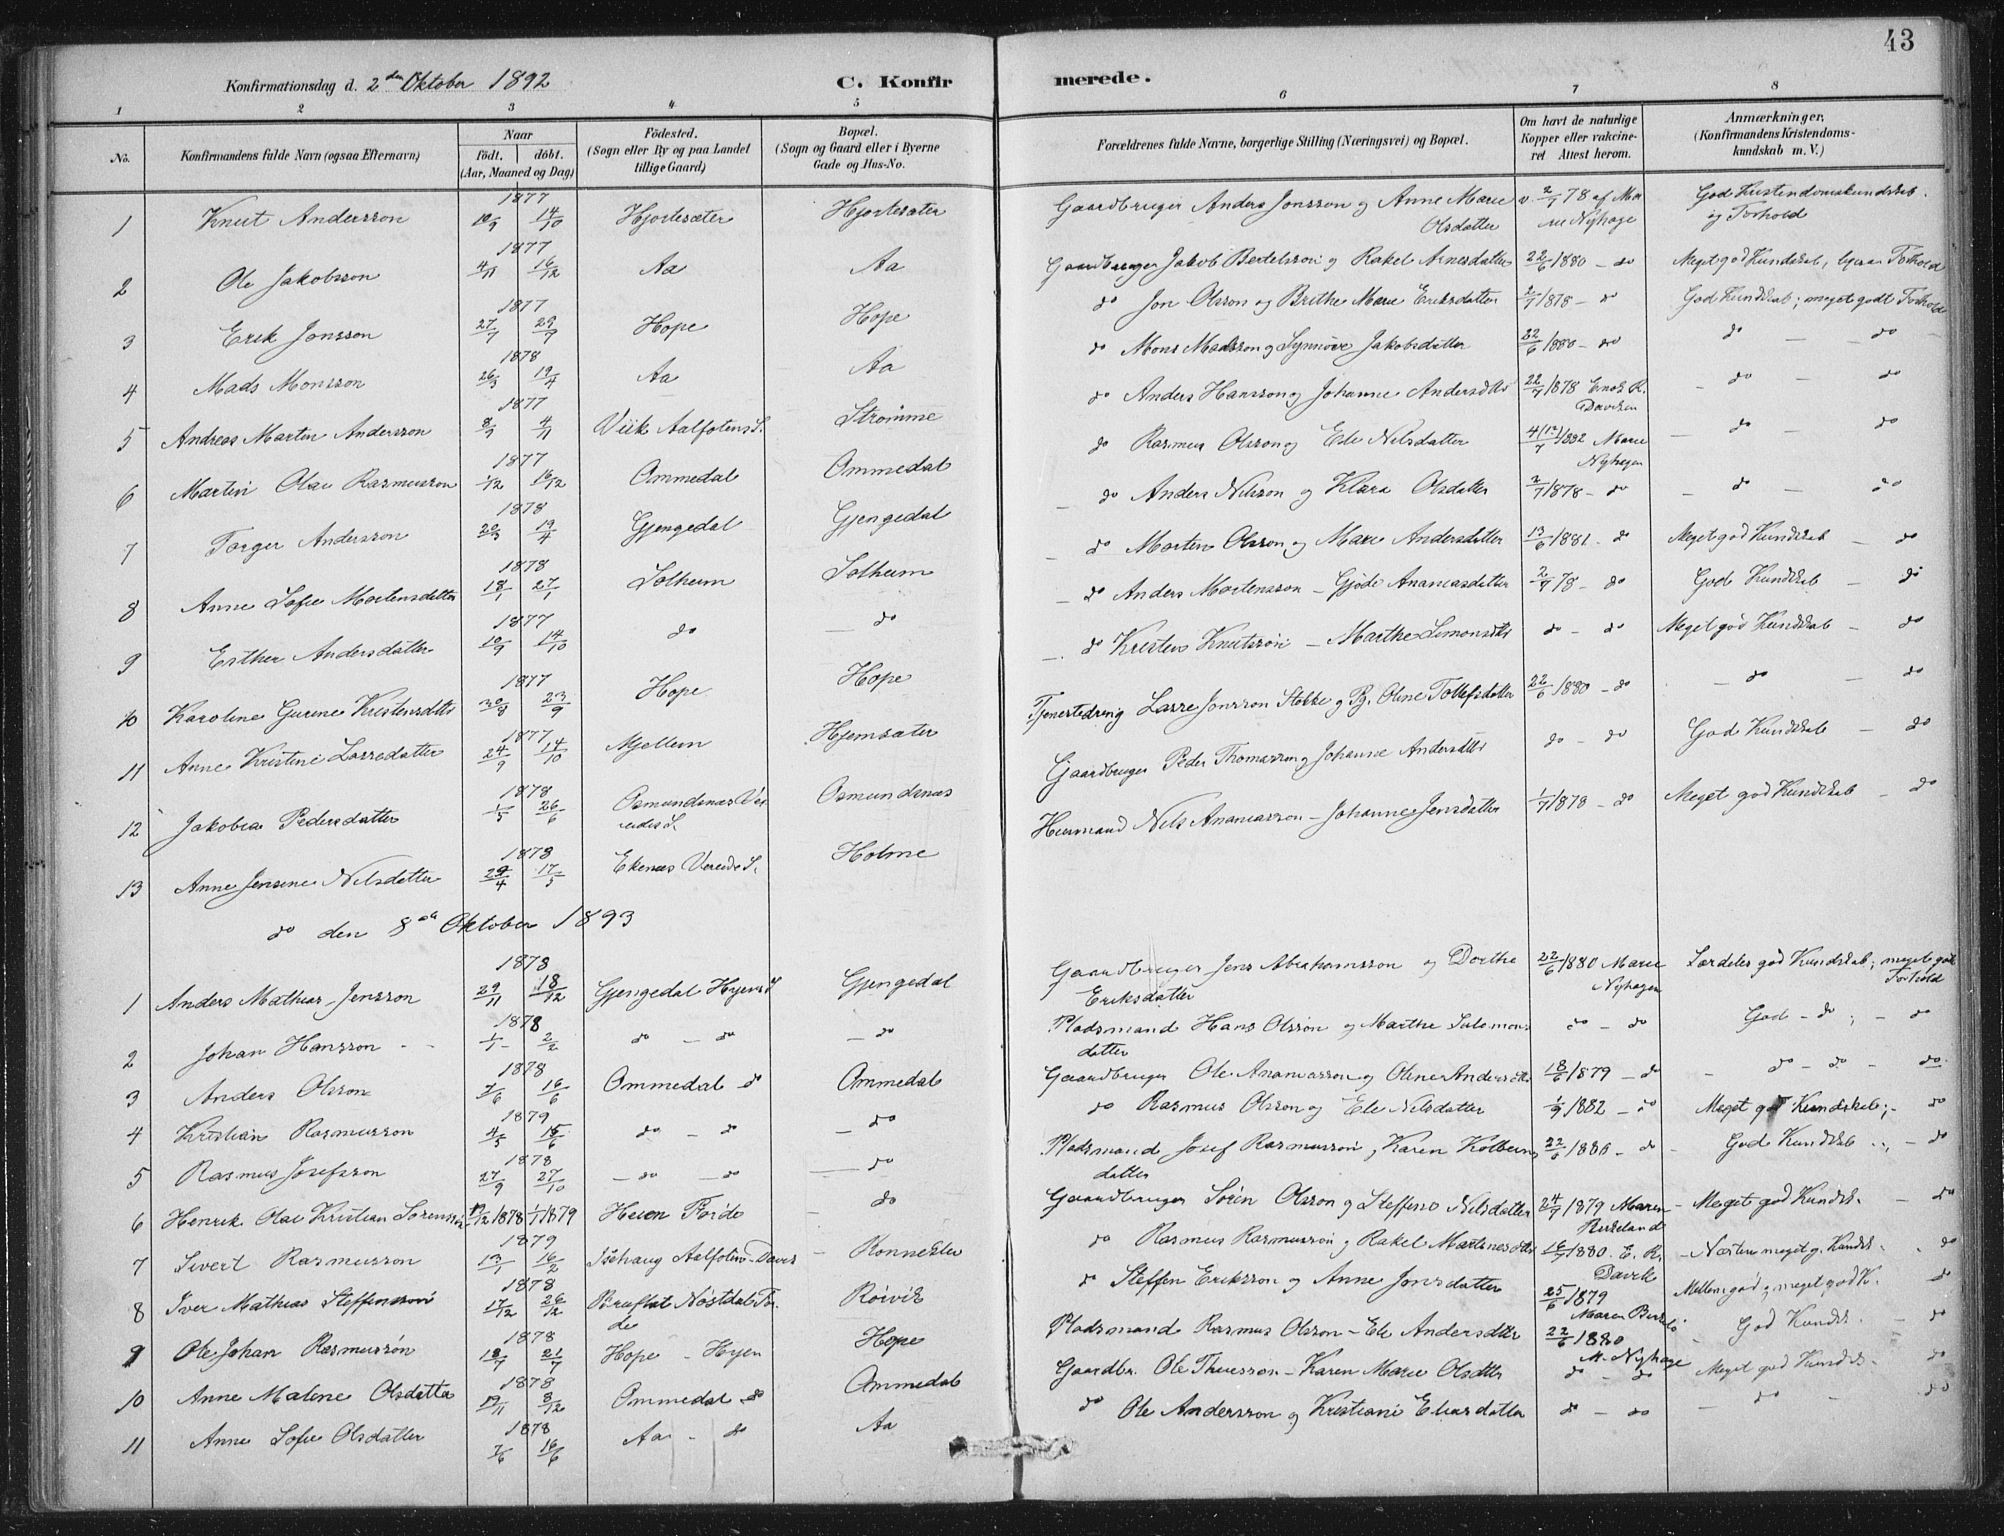 43
Konfirmationsdag d. 2den Oktober 1892 C. Konfirmerede.
1 2 3 4 5 6 7 8
No. Konfirmandens fulde Navn (ogsaa Efternavn) Naar født. døbt. (Aar, Maaned og Dag) Fødested. (Sogn eller By og paa Landet tillige Gaard) Bopæl. (Sogn og Gaard eller i Byerne Gade og Hus-No. Forældrenes fulde Navne, borgerlige Stilling (Næringsvei) og Bopæl. Om havt de naturlige Kopper eller vakcineret Attest herom. Anmærkninger. (Konfirmandens Kristendomskundskab m. V.)
1 Knut Andersson 1877 10/9 14/10 Hjortesæter Hjortesæter Gaardbruger Anders Jonsson og Anne Marie Olsdatter v. 2/7 78 af Marie Nyhage God Kristendomskundskab og Forhold
2 Ole Jakobsson 1877 4/11 16/12 Aa Aa Gaardbruger Jakob Bertelsson og Rakel Arnesdatter 22/6 1880 - do Meget god Kundskab, Forhold
3 Erik Jonsson 1877 27/7 29/9 Hope Hope do Jon Olsson og Brithe Marie Eriksdatter 2/7 1878 - do God Kundskab; meget godt Forhold
4 Mads Monsson 1878 26/3 19/4 Aa Aa do Mons Madsson og Synnøve Jakobsdatter 22/6 1880 - do do - do
5 Andreas Martin Andersson 1877 8/9 4/11 Viik Aalfotens S. Strømme do Anders Hansson og Johanne Andersdtr 22/7 1878 Enok R. Davidsen - do - do
6 Martin Olai Rasmusson 1877 1/12 16/12 Ommedal Ommedal do Rasmus Olsson og Ele Nilsdatter 4(12)/7 1882 Marie Nyhagen - do - do
7 Torger Andersson 1878 20/3 19/4 Gjengedal Gjengedal do Anders Nilsson og Klara Olsdatter 2/7 1878 - do - do - do
8 Anne Sofie Mortensdatter 1878 18/1 27/1 Solheim Solheim - do Morten Olsson og Marie Andersdatter 13/6 1881 - do Meget god Kundskab - do
9 Esther Andersdatter 1877 10/9 14/10 do - do - do Anders Mortensson - Gjøde Ananiasdatter 2/7 78 - do God Kundskab - do
10 Karoline Gurine Kristensdtr 1877 30/8 23/9 Hope Hope - do Kristen Knutsson - Marthe Simonsdtr do - do Meget god Kundskab - do
11 Anne Kristine Lassedatter 1877 24/9 14/10 Mjellem Hjemsæter Tjenestedreng Lasse Jonsson Stokke og Pg. Oline Tollefsdatter 22/6 1880 - do - do - do
12 Jakobia Pedersdatter 1878 1/5 26/6 Osmundsnæs Vereides S. Osmundsnæs Gaardbruger Peder Thomasson og Johanne Andersdtr do - do God Kundskab - do
13 Anne Jensine Nilsdatter 1878 29/4 17/5 Ekenæs Vereide S. Holme Huusmand Nils Ananiasson - Johanne Jensdatter 1/7 1878 - do Meget god Kundskab - do
do den 8de Oktober 1893
1 Anders Mathias Jensson 1878 29/11 18/12 Gjengedal Hyens S Gjengedal Gaardbruger Jens Abrahamsson og Dorthe Eriksdatter 22/6 1880 Marie Nyhagen Særdeles god Kundskab; meget godt Forhold
2 Johan Hansson 1878 1/1 2/2 do - do - do Pladsmand Hans Olsson og Marthe Salomonsdatter do - do God - do; - do
3 Anders Olsson 1878 7/6 16/6 Ommedal do Ommedal Gaardbruger Ole Ananiasson og Oline Andersdtr 18/6 1879 - do - do - do - do
4 Kristian Rasmusson 1879 4/5 15/6 do - do - do do Rasmus Olsson og Ele Nilsdatter 1/9 1882 - do Meget god Kundskab; - do
5 Rasmus Josefsson 1878 27/9 27/10 - do - do - do Pladsmand Josef Rasmusson, Karen Kolbeinsdatter 22/6 1880 - do God Kundskab - do
6 Henrik Olai Kristian Sørensson 19/12 1878 1/1 1879 Heien Førde do Gaardbruger Søren Olsson og Steffine Nilsdatter 24/7 1879 Maren Birkeland - Meget god Kundsk. - do
7 Sivert Rasmusson 1879 13/1 16/2 Isehaug Aalfoten - Davik - Rønnekleiv do Rasmus Rasmusson og Rakel Martinesdtr 16/7 1880. E. R. Davik - Næsten meget g. Kundsk. - do
8 Iver Mathias Steffensson 1878 17/12 26/12 Bruflat Nøstdal Førde Røivik do Steffen Eriksson og Anne Jonsdatter 25/6 1879 Maren Birkl. Mellem god og meget god K. do
9 Ole Johan Rasmusson 1878 18/7 21/7 Hope - Hyen Hope Pladsmand Rasmus Olsson - Ele Andersdtr 22/6 1880 M. Nyhage God Kundsk. - do
10 Anne Malene Olsdatter 1878 19/11 8/12 Ommedal do Ommedal Gaardbr. Ole Thuesson - Karen Marie Olsdtr do - do Meget god Kundsk. - do
11 Anne Sofie Olsdatter 1878 7/6 16/6 Aa - do Aa do Ole Andersson og Kristiane Eliasdatter do - do - do - do